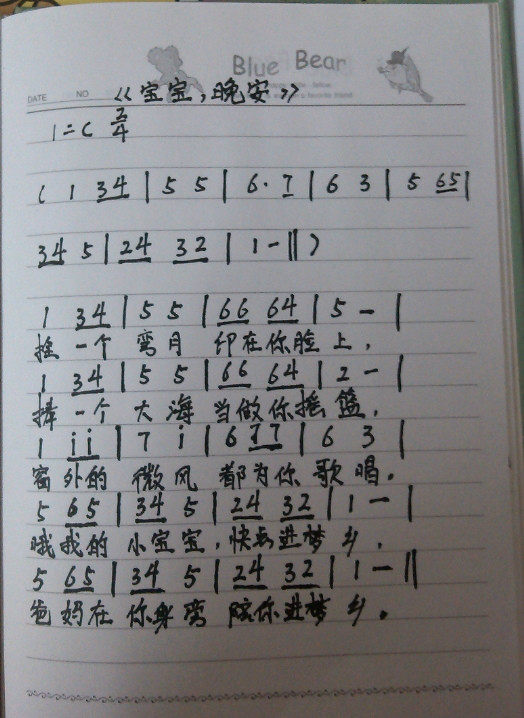 Blue Bear
DATE NO
《宝宝,晚安》
1=C 2/4
( 1 34 | 5 5 | 6· 7 | 6 3 | 5 65 |
34 5 | 24 32 | 1 - ‖ )
1 34 | 5 5 | 66 64 | 5 - |
摇一个 弯月 印在你脸上,
1 34 | 5 5 | 66 64 | 2 - |
捧一个 大海 当做你摇篮,
1 i̇i̇ | 7 i̇ | 6 77 | 6 3 |
窗外的 微风 都为你歌唱。
5 65 | 34 5 | 24 32 | 1 - |
哦我的 小宝宝,快点进梦乡,
5 65 | 34 5 | 24 32 | 1 - ‖
爸妈在 你身弯 陪你进梦乡。